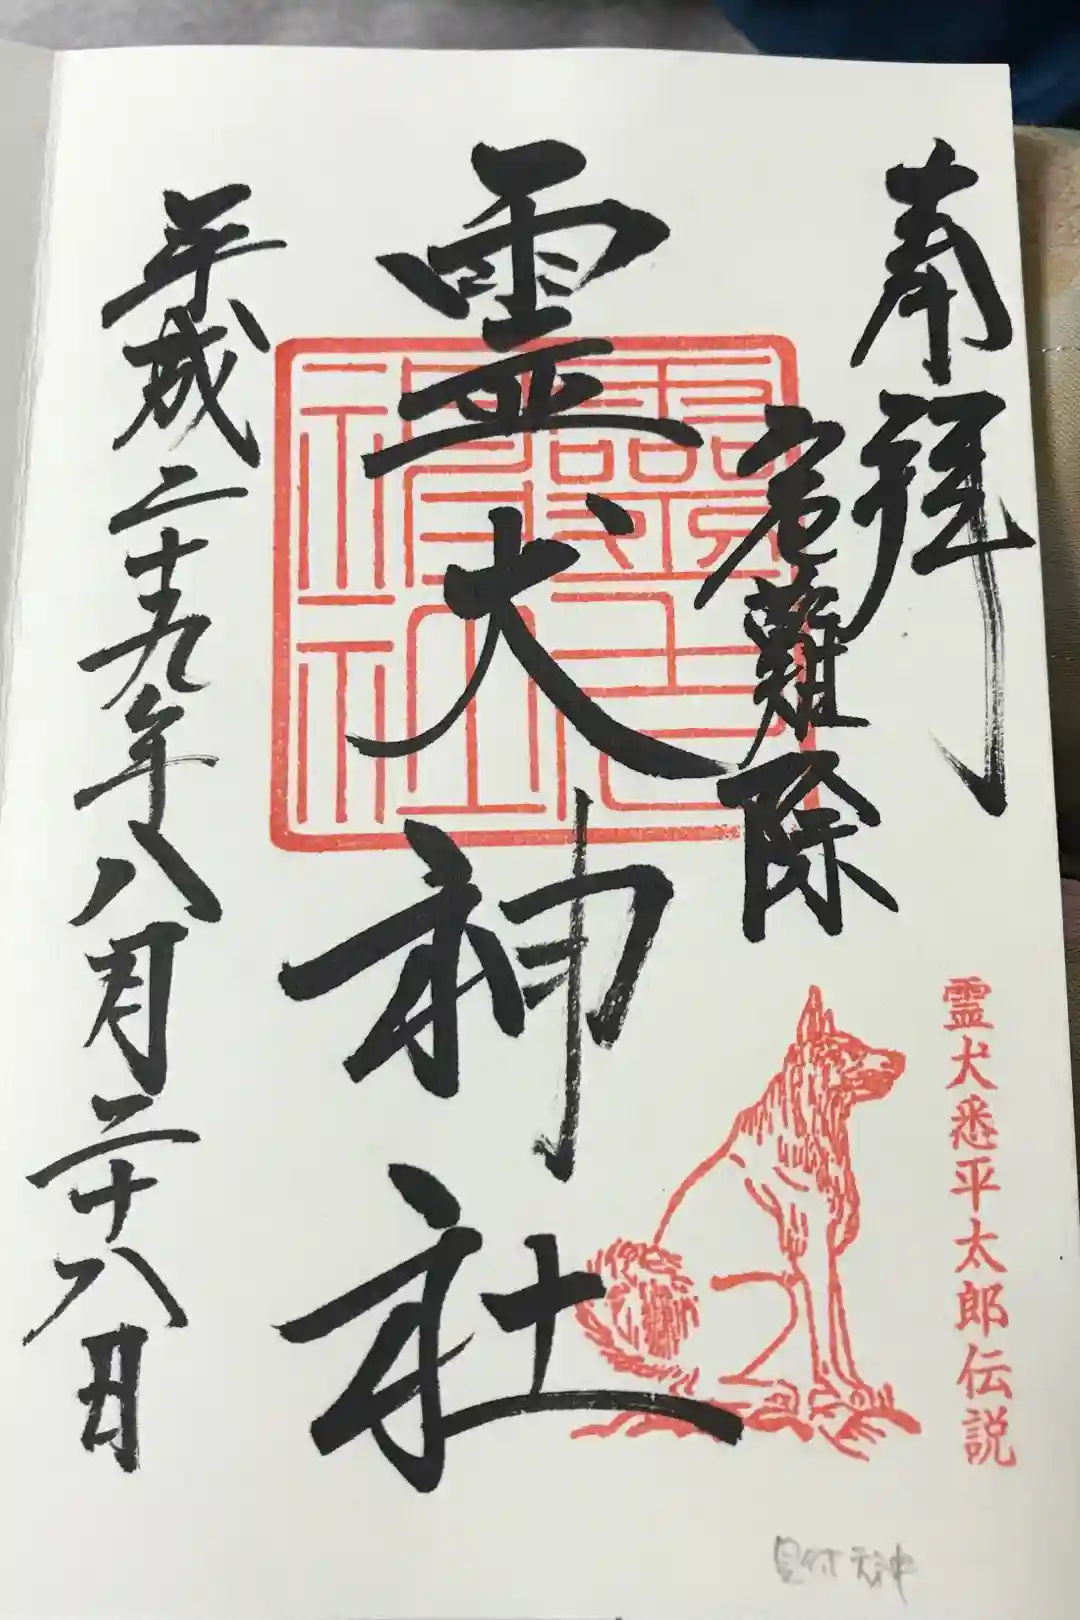 奉拝
難除
霊犬神社
平成二十九年八月二十八日
霊犬悉平太郎伝説
見付天神